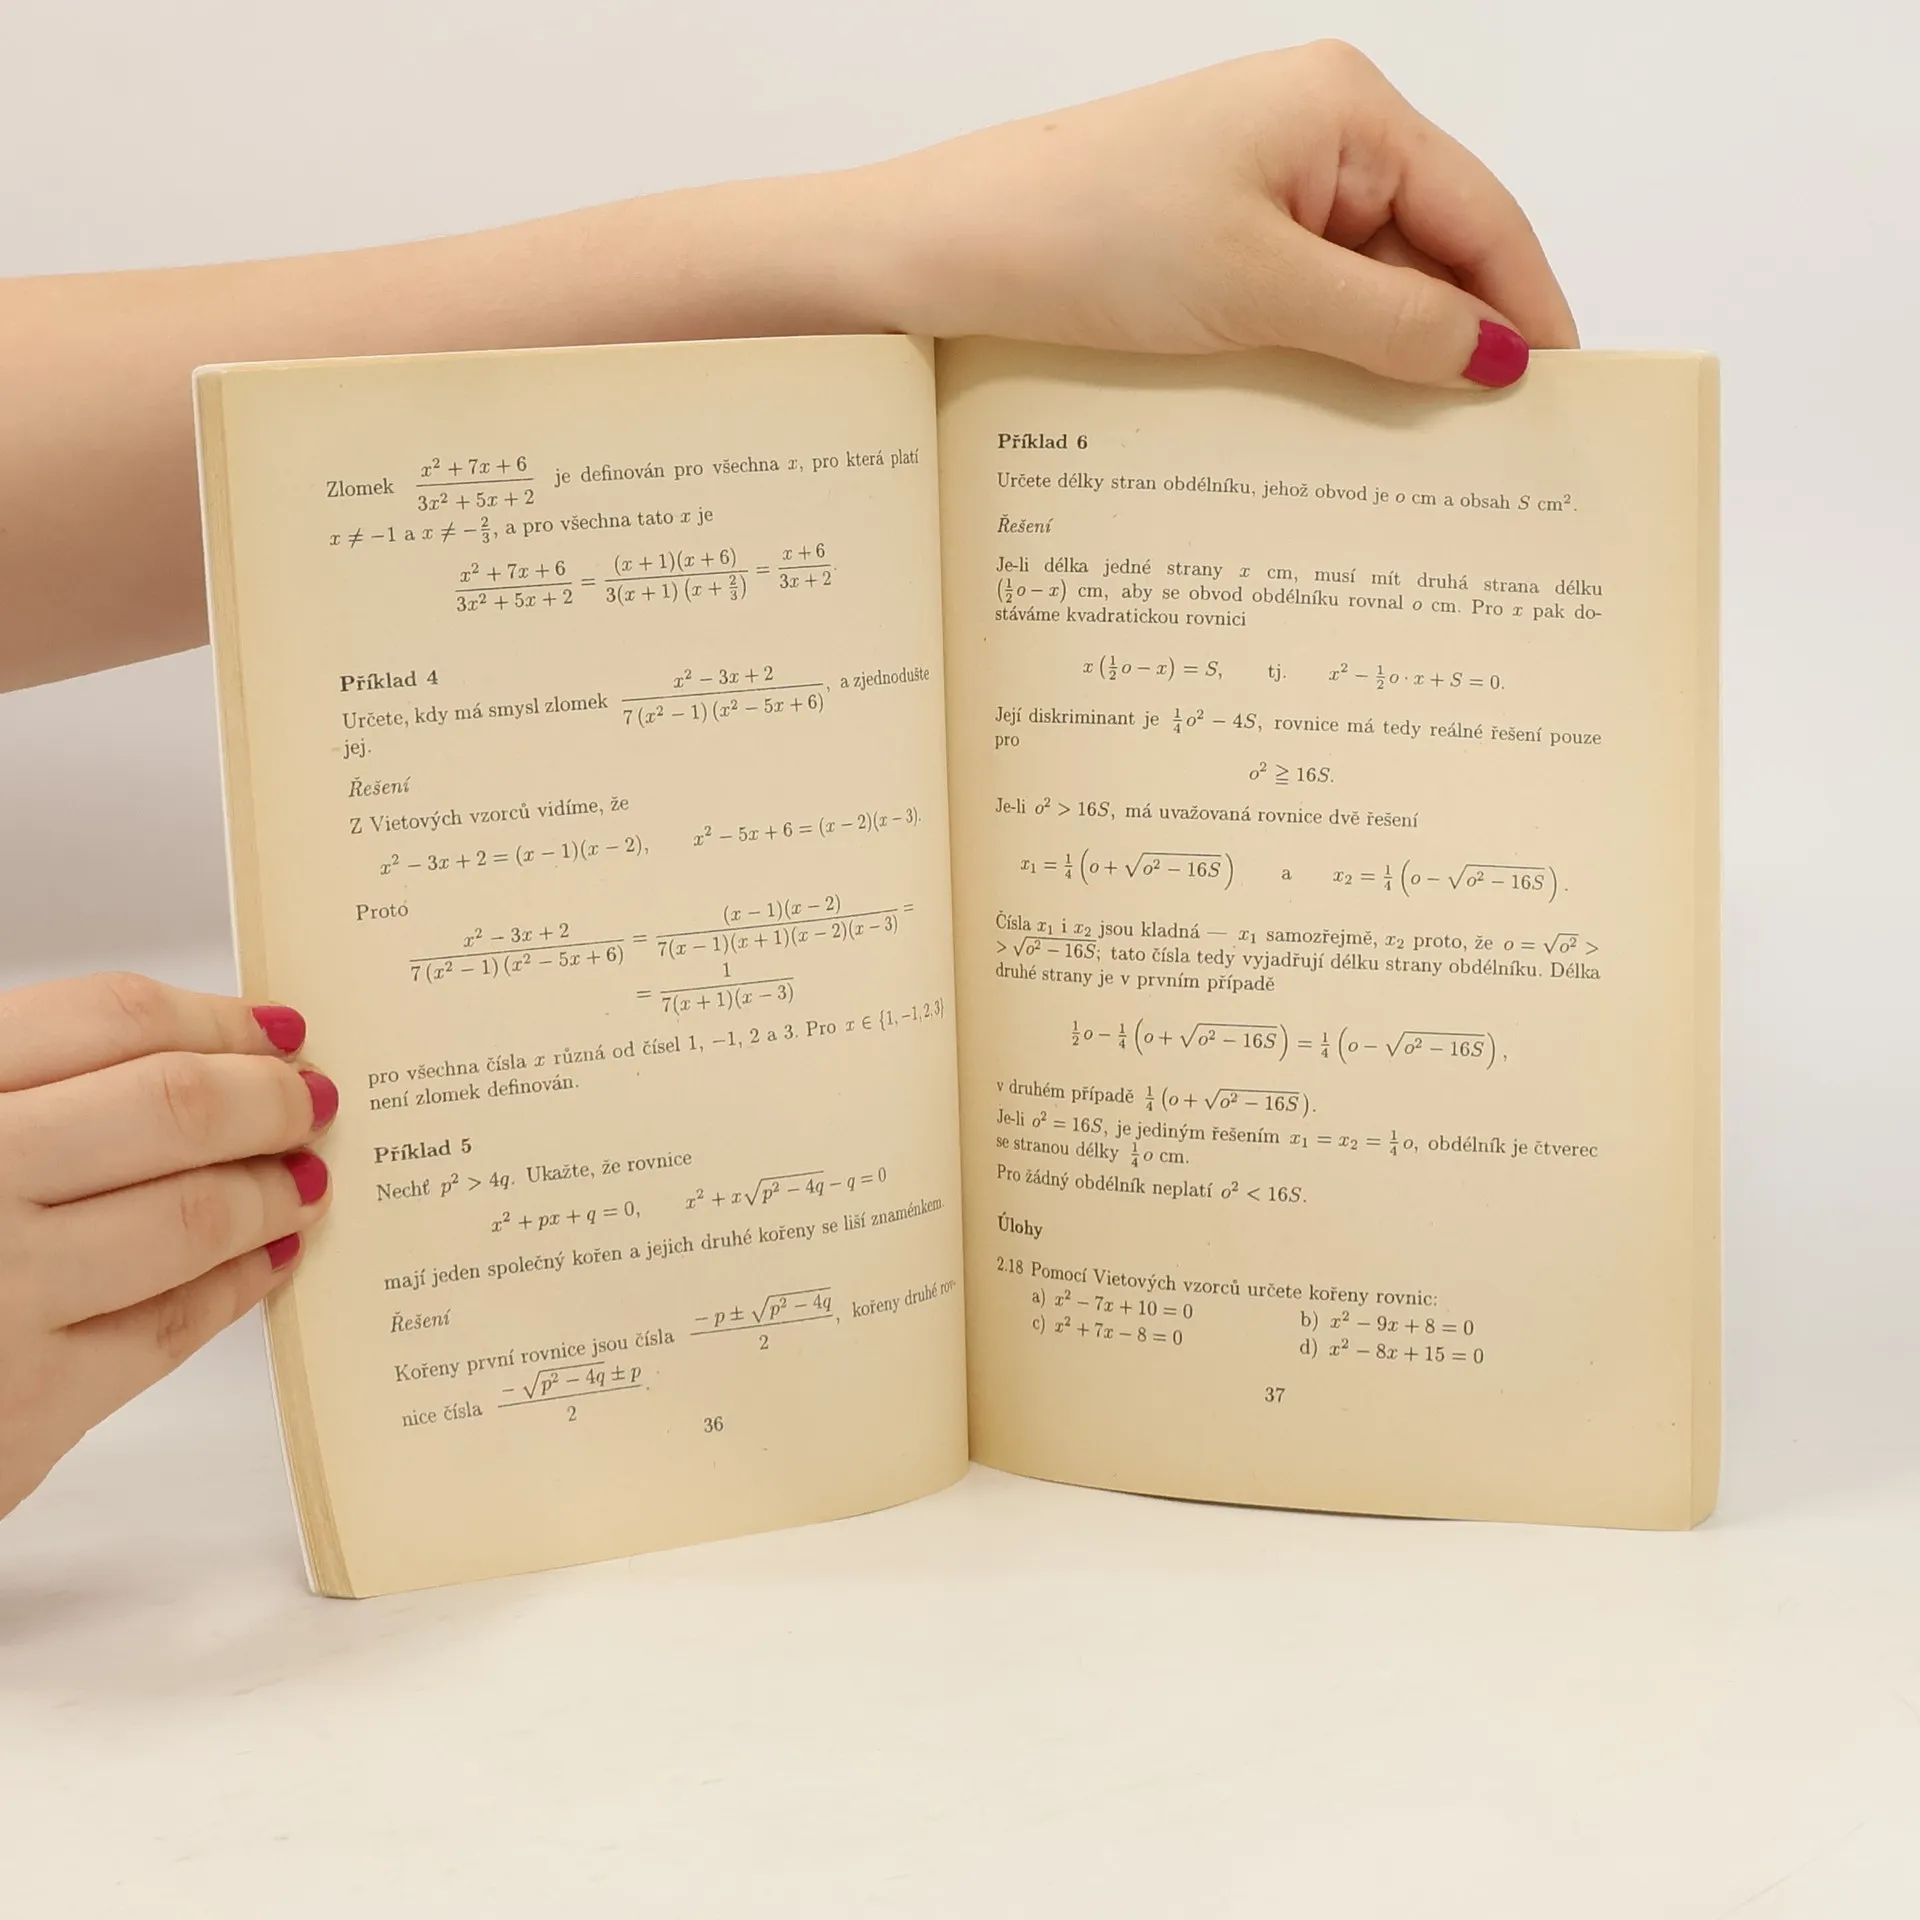 Zlomek (x² + 7x + 6)/(3x² + 5x + 2) je definován pro všechna x, pro která platí
x ≠ −1 a x ≠ −2/3, a pro všechna tato x je
(x² + 7x + 6)/(3x² + 5x + 2) = ((x + 1)(x + 6))/(3(x + 1)(x + 2/3)) = (x + 6)/(3x + 2).
Příklad 4
Určete, kdy má smysl zlomek (x² − 3x + 2)/(7(x² − 1)(x² − 5x + 6)), a zjednodušte
jej.
Řešení
Z Vietových vzorců vidíme, že
x² − 3x + 2 = (x − 1)(x − 2), x² − 5x + 6 = (x − 2)(x − 3).
Proto
(x² − 3x + 2)/(7(x² − 1)(x² − 5x + 6)) = ((x − 1)(x − 2))/(7(x − 1)(x + 1)(x − 2)(x − 3)) =
= 1/(7(x + 1)(x − 3))
pro všechna čísla x různá od čísel 1, −1, 2 a 3. Pro x ∈ {1, −1, 2, 3}
není zlomek definován.
Příklad 5
Nechť p² > 4q. Ukažte, že rovnice
x² + px + q = 0, x² + x√(p² − 4q) − q = 0
mají jeden společný kořen a jejich druhé kořeny se liší znaménkem.
Řešení
Kořeny první rovnice jsou čísla (−p ± √(p² − 4q))/2, kořeny druhé rov-
nice čísla (−√(p² − 4q) ± p)/2.
36
Příklad 6
Určete délky stran obdélníku, jehož obvod je o cm a obsah S cm².
Řešení
Je-li délka jedné strany x cm, musí mít druhá strana délku
(½o − x) cm, aby se obvod obdélníku rovnal o cm. Pro x pak do-
stáváme kvadratickou rovnici
x(½o − x) = S, tj. x² − ½o · x + S = 0.
Její diskriminant je ¼o² − 4S, rovnice má tedy reálné řešení pouze
pro
o² ≧ 16S.
Je-li o² > 16S, má uvažovaná rovnice dvě řešení
x₁ = ¼(o + √(o² − 16S)) a x₂ = ¼(o − √(o² − 16S)).
Čísla x₁ i x₂ jsou kladná — x₁ samozřejmě, x₂ proto, že o = √(o²) >
> √(o² − 16S); tato čísla tedy vyjadřují délku strany obdélníku. Délka
druhé strany je v prvním případě
½o − ¼(o + √(o² − 16S)) = ¼(o − √(o² − 16S)),
v druhém případě ¼(o + √(o² − 16S)).
Je-li o² = 16S, je jediným řešením x₁ = x₂ = ¼o, obdélník je čtverec
se stranou délky ¼o cm.
Pro žádný obdélník neplatí o² < 16S.
Úlohy
2.18 Pomocí Vietových vzorců určete kořeny rovnic:
a) x² − 7x + 10 = 0 b) x² − 9x + 8 = 0
c) x² + 7x − 8 = 0 d) x² − 8x + 15 = 0
37